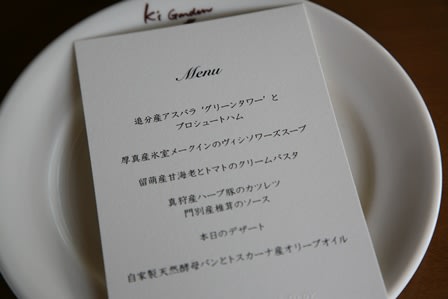 K's Garden
Menu
追分産アスパラ‘グリーンタワー’と
プロシュートハム
厚真産氷室メークインのヴィシソワーズスープ
留萌産甘海老とトマトのクリームパスタ
真狩産ハーブ豚のカツレツ
門別産椎茸のソース
本日のデザート
自家製天然酵母パンとトスカーナ産オリーブオイル